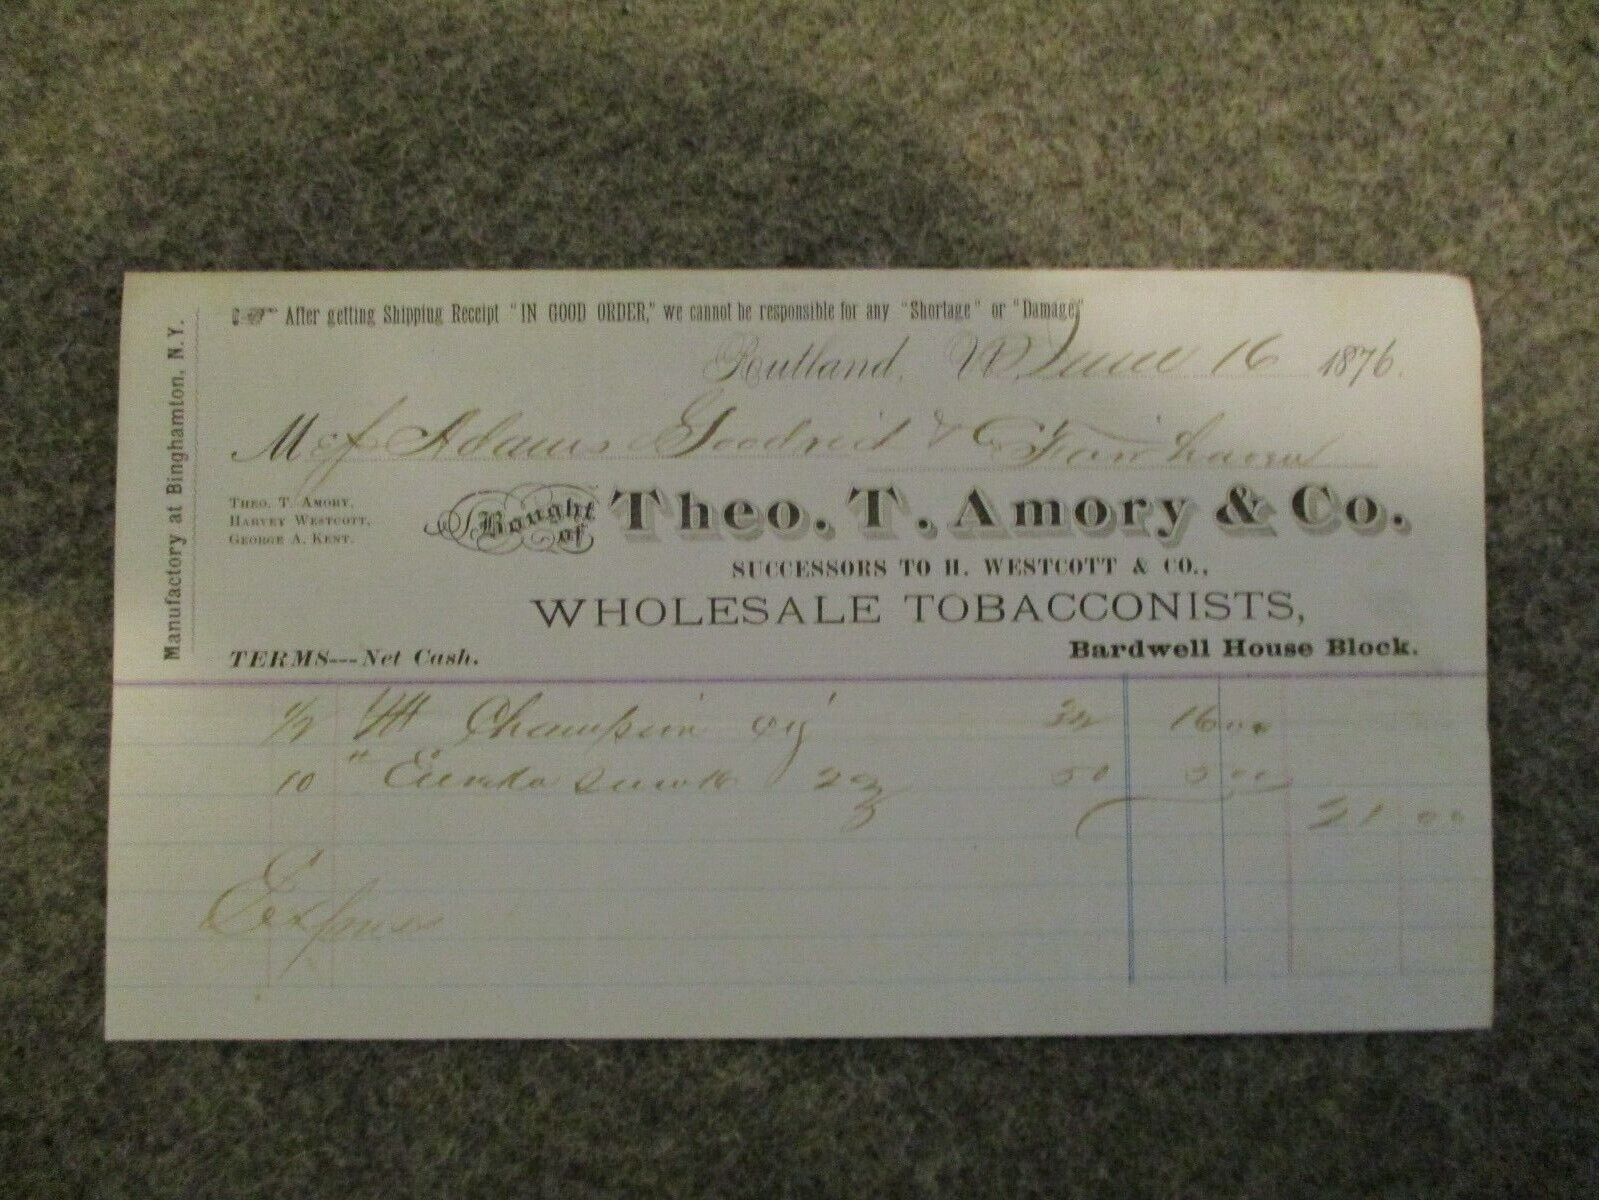 After getting Shipping Receipt "IN GOOD ORDER," we cannot be responsible for any "Shortage" or "Damage."
Rutland, Vt. June 16 1876.
Adams & Co Fairhaven
Manufactory at Binghamton, N.Y.
THEO. T. AMORY,
HARVEY WESTCOTT,
GEORGE A. KENT.
Bought of Theo. T. Amory & Co.
SUCCESSORS TO H. WESTCOTT & CO.,
WHOLESALE TOBACCONISTS,
Bardwell House Block.
TERMS---Net Cash.
1/2 M Champion Cig 32 16 00
10 " Eureka Smok 50 5 00
21 00